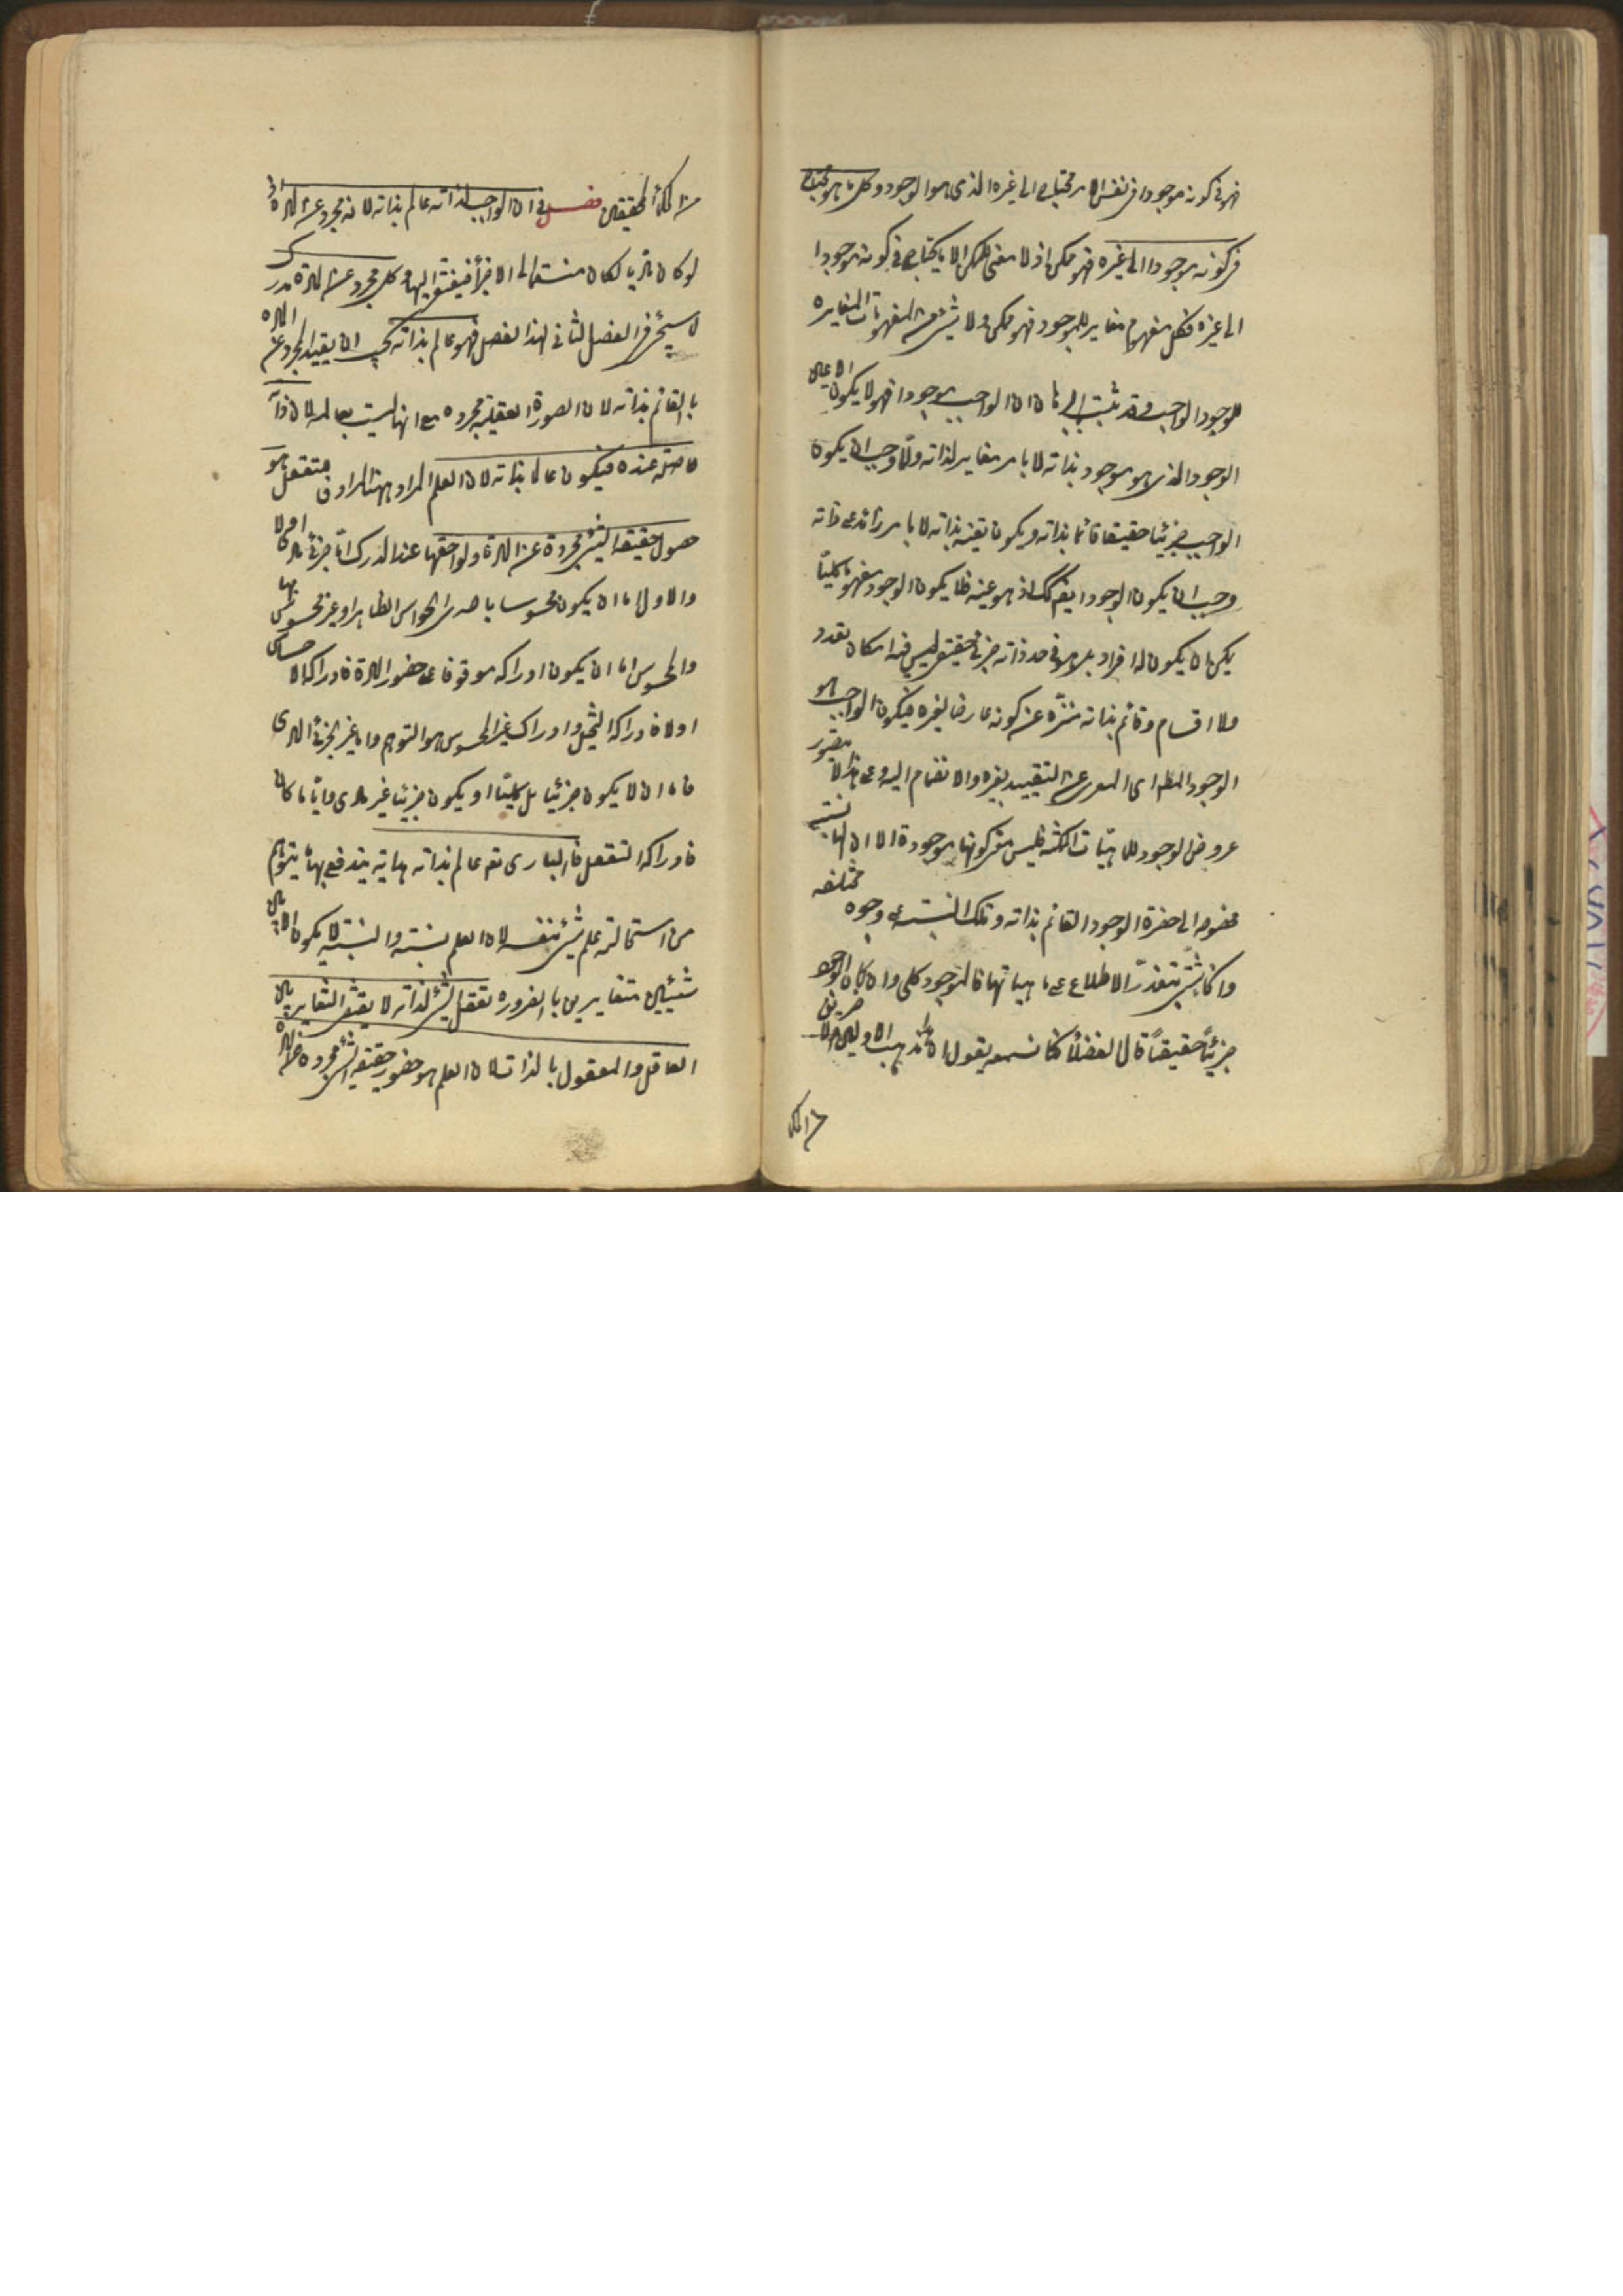 فهو في كونه موجودا في نفس الامر محتاج الى غيره الذي هو الوجود وكل ما هو محتاج
في كونه موجودا الى غيره فهو ممكن اذ لا معنى للممكن الا ما يحتاج في كونه موجودا
الى غيره فكل مفهوم مغاير للوجود فهو ممكن ولا شئ من المفهومات المغايرة
للوجود الواجب وقد ثبت بالبرهان ان الواجب موجود فهو لا يكون الا عين
الوجود الذي هو موجود بذاته لا بامر مغاير لذاته ولما وجب ان يكون
الواجب جزئيا حقيقيا قائما بذاته ويكون تعينه بذاته لا بامر زائد على ذاته
وجب ان يكون الوجود ايضا كك اذ هو عينه فلا يكون الوجود مفهوما كليا
يمكن ان يكون له افراد بل هو في حد ذاته جزئي حقيقي ليس فيه امكان تعدد
ولا اقسام وقائم بذاته منزه عن كونه عارضا لغيره فيكون الواجب هو
الوجود المطلق اى المعرى عن التقييد بغيره والانضمام اليه وعلى هذا لا يتصور
عروض الوجود للماهيات الممكنة فليس معنى كونها موجودة الا ان لها نسبة
مخصوصة الى حضرة الوجود القائم بذاته وتلك النسبة على وجوه مختلفة
وانحاء شتى يتعذر الاطلاع على ماهياتها فالموجود كلى وان كان الوجود
جزئيا حقيقيا قال بعض الفضلاء كنا نسمعه يقول ان هذا مذهب الاولين
من الحكماء
من الحكماء المحققين فصل في ان الواجب لذاته عالم بذاته لانه مجرد عن المادة اذ
لو كان ماديا لكان منقسما الى الاجزاء فيفتقر اليها وكل مجرد عن المادة مدرك
لما سيجئ في الفصل الثاني لهذا الفصل فهو عالم بذاته يجب ان يقيد المجرد عن المادة
بالقائم بذاته لان الصورة العقلية مجردة مع انها ليست بعالمة لان ذاته
حاصلة عنده فيكون عالما بذاته لان العلم المراد بهذا المرادف للتعقل هو
حصول حقيقة الشئ مجردة عن المادة ولواحقها عند المدرك اما جزئي مادي او لا
والاول اما ان يكون محسوسا باحدى الحواس الظاهرة او غير محسوس بها
والمحسوس اما ان يكون ادراكه موقوفا على حضور المادة فادراكه الاحساس
او لا فادراكه التخيل وادراك غير المحسوس هو التوهم واما غير الجزئي المادي
فاما ان لا يكون جزئيا بل كليا او يكون جزئيا غير مادي وايا ما كان
فادراكه التعقل فالباري تعالى عالم بذاته هداية يندفع بها ما يتوهم
من استحالة علم الشئ بنفسه لان العلم نسبة والنسبة لا يكون الا بين
شيئين متغايرين بالضرورة تعقل الشئ لذاته لا يقتضى التغاير بين
العاقل والمعقول بالذات لان العلم هو حضور حقيقة الشئ مجردة عن المادة